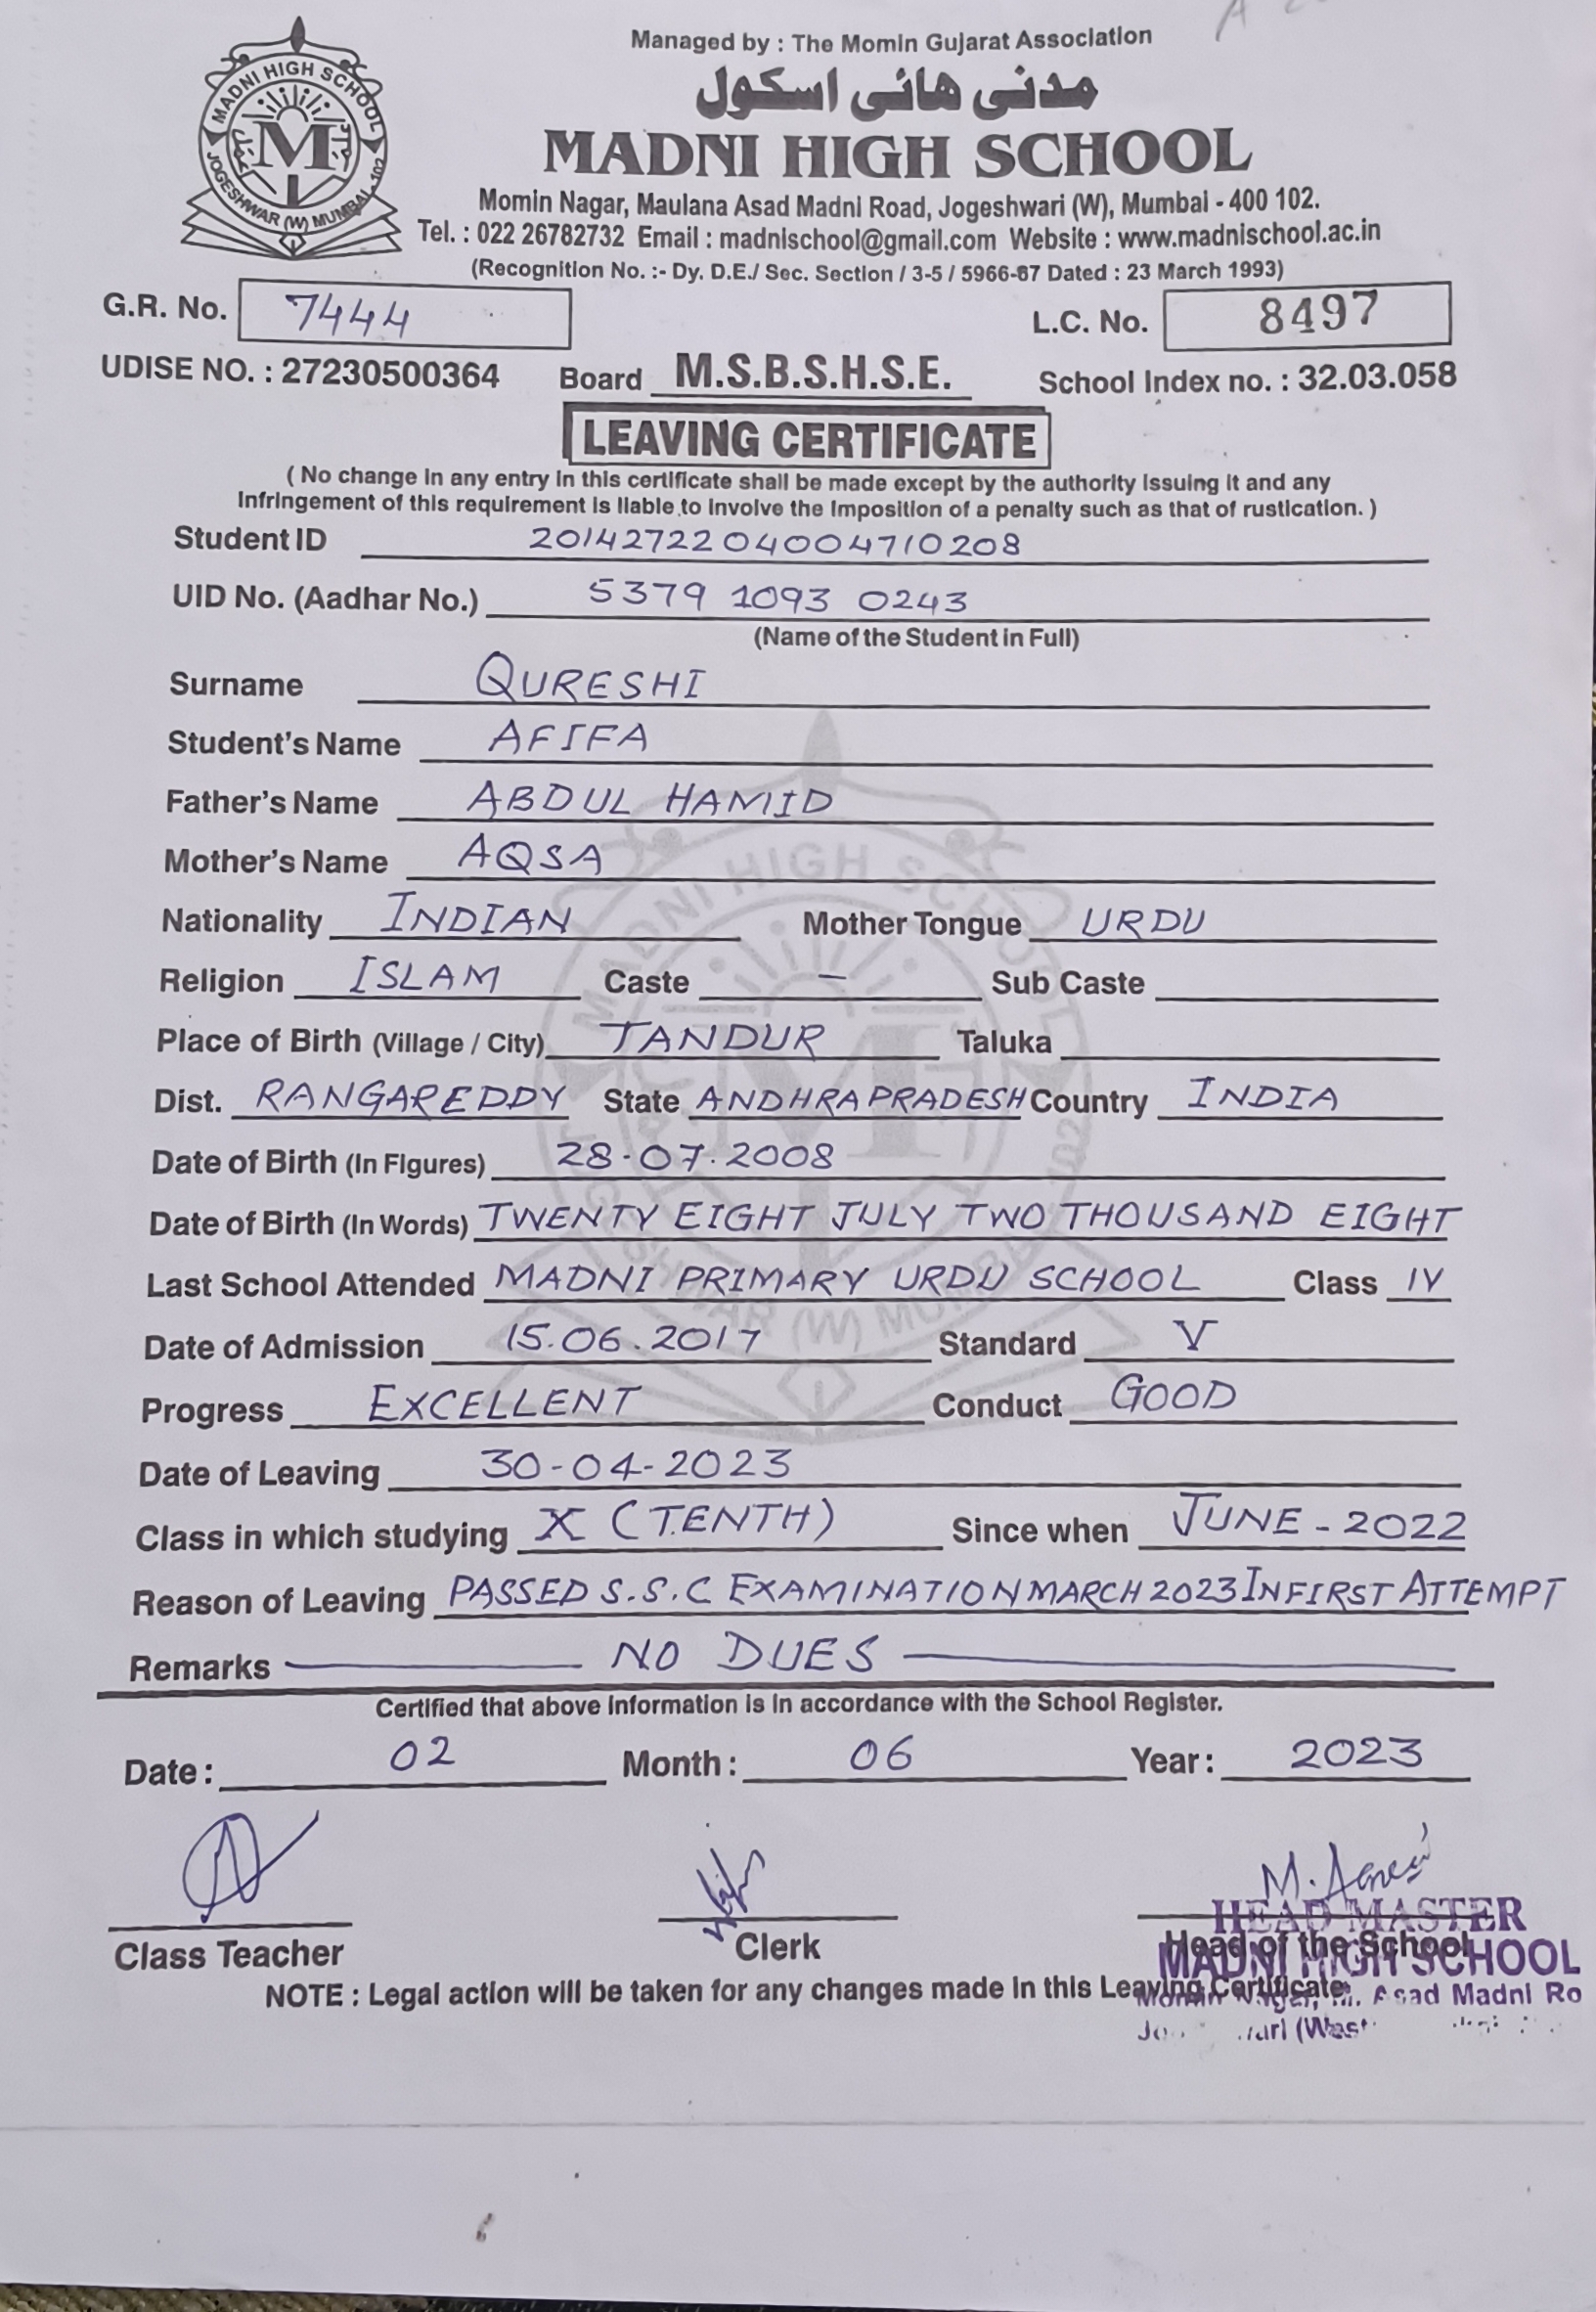 Managed by : The Momin Gujarat Association
مدنی ھائی اسکول
MADNI HIGH SCHOOL
Momin Nagar, Maulana Asad Madni Road, Jogeshwari (W), Mumbai - 400 102.
Tel. : 022 26782732 Email : madnischool@gmail.com Website : www.madnischool.ac.in
(Recognition No. :- Dy. D.E./ Sec. Section / 3-5 / 5966-67 Dated : 23 March 1993)
MADNI HIGH SCHOOL
M
JOGESHWAR (W) MUMBAI - 102
G.R. No. 7444 L.C. No. 8497
UDISE NO. : 27230500364 Board M.S.B.S.H.S.E. School Index no. : 32.03.058
LEAVING CERTIFICATE
( No change in any entry in this certificate shall be made except by the authority issuing it and any
infringement of this requirement is liable to involve the imposition of a penalty such as that of rustication. )
Student ID 2014272204004710208
UID No. (Aadhar No.) 5379 1093 0243
(Name of the Student in Full)
Surname QURESHI
Student's Name AFIFA
Father's Name ABDUL HAMID
Mother's Name AQSA
Nationality INDIAN Mother Tongue URDU
Religion ISLAM Caste – Sub Caste
Place of Birth (Village / City) TANDUR Taluka
Dist. RANGAREDDY State ANDHRA PRADESH Country INDIA
Date of Birth (In Figures) 28.07.2008
Date of Birth (In Words) TWENTY EIGHT JULY TWO THOUSAND EIGHT
Last School Attended MADNI PRIMARY URDU SCHOOL Class IV
Date of Admission 15.06.2017 Standard V
Progress EXCELLENT Conduct GOOD
Date of Leaving 30-04-2023
Class in which studying X (TENTH) Since when JUNE - 2022
Reason of Leaving PASSED S.S.C EXAMINATION MARCH 2023 IN FIRST ATTEMPT
Remarks NO DUES
Certified that above information is in accordance with the School Register.
Date : 02 Month : 06 Year : 2023
HEAD MASTER
Class Teacher Clerk Head of the School
MADNI HIGH SCHOOL
NOTE : Legal action will be taken for any changes made in this Leaving Certificate.
Asad Madni Ro